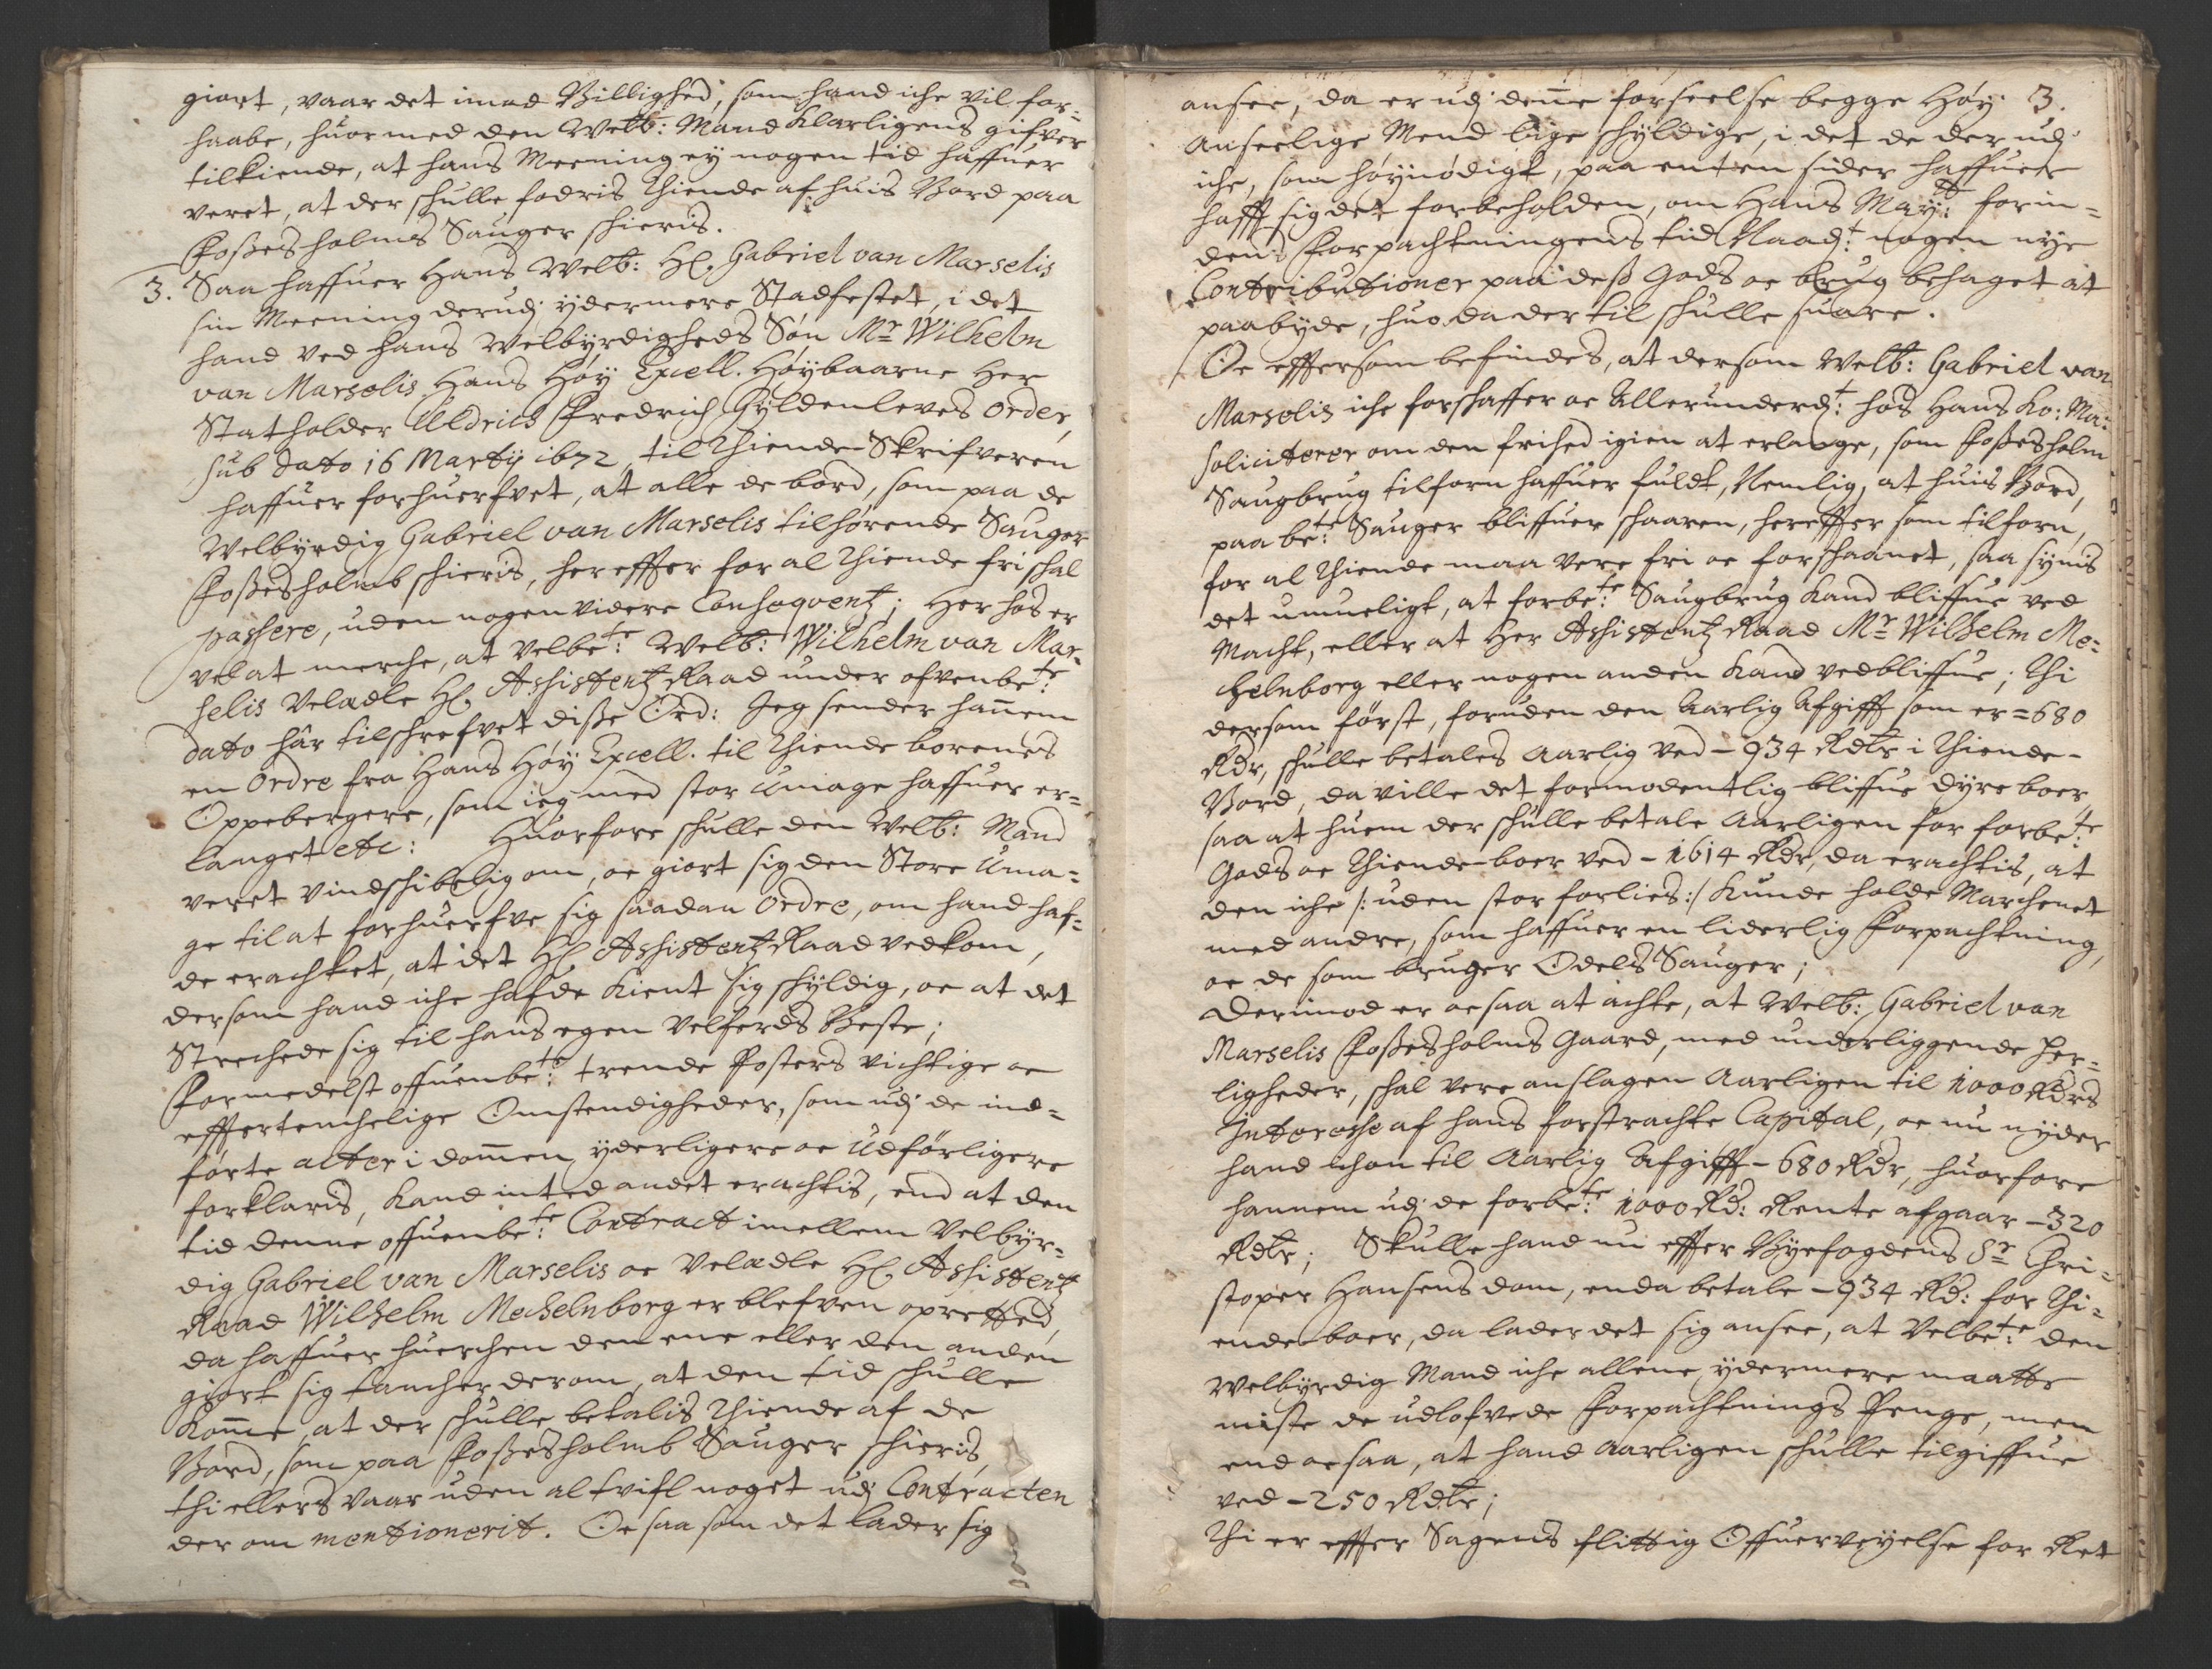 giort, vaar det imod Billighed, som hand iche vil for-
haabe, huormed den Welb: Mand Klarligens gifver
tilkiende, at hans Meening ey nogen tid haffuer
veret, at der schulle fodris Thiende af huis Bord paa
Foßesholms Sauger schieris.
3. Saa haffuer Hans Welb: Hl. Gabriel van Marselis
sin Meening derudj ydermere Stadfestet, i det
hand ved hans Welbyrdigheds Søn Mr Wilhelm
van Marselis, Hans Høy Excell. Høybaarne Her
Statholder Uldrich Fredrich Gyldenleves Order,
sub dato 16 Martij 1672, til Thiende Skrifveren
haffuer forhuerfvet, at alle de bord, som paa de
Welbyrdig Gabriel van Marselis tilhørende Sauger
Foßesholmb schieris, hereffter for al Thiende fri schal
passere, uden nogen videre Conseqventz; Her hos er
vel at merche, at velbete: Welb: Wilhelm van Mar-
selis Veladle Hl. Assistentz Raad under ofvenbete:
dato hâr tilschrefvet diße Ord: Jeg sender hannem
en Ordre fra Hans Høy Excell. til Thiende borenes
Oppebergere, som ieg med stor Umage haffuer er-
langet etc: Huorfore schulle den Welb: Mand
veret vindschibelig om, oc giort sig den Store Uma-
ge til at forhuerfve sig saadan Ordre, om hand haf-
de erachtet, at det Hl. Assistentz Raad vedkom,
dersom hand iche hafde kient sig schyldig, oc at det
Strechede sig til hans egen Velferds Beste;
Formedelst offuenbete: trende Posters vichtige oc
efftertenchelige Omstendigheder, som udj de ind-
førte acter i domen yderligere oc Udførligere
forklaris, kand inted andet erachtis, end at den
tid denne offuenbete: Contract imellem Velbyr-
dig Gabriel van Marselis oc Veladle Hl. Assistentz
Raad Wilhelm Mechelnborg er blefven opretted,
da haffuer huerchen den ene eller den anden
giort sig tancher derom, at den tid schulle
komme, at der schulle betalis Thiende af de
Bord, som paa Foßesholmb Sauger schieris,
thi ellers vaar uden al tvifl noget udj Contracten
der om mentionerit. Oc saasom det lader sig
ansee, da er udj denne forseelse begge Høy- 3.
anseelige Mend lige schyldige, i det de der udj
iche, som høynødigt, paa enten sider haffuer
hafft sig det forbeholden, om Hans Maytt: forin-
den Forpachtningens tid Naadt: nogen nye
Contributioner paa deß Gods oc brug behaget at
paabyde, huo da der til schulle suare.
Oc effersom befindes, at dersom Welb: Gabriel van
Marselis iche forschaffer oc Allerunderdt: hos Hans Ko: Ma:
soliciterer om den frihed igien at erlange, som Foßesholm
Saugbrug tilforn haffuer fuldt, Nemlig, at huis Bord,
paa bete: Sauger bliffuer schaaren, hereffter som tilforn,
for al Thiende maa vere fri oc forschaanet, saa synis
det umueligt, at forbete: Saugbrug kand bliffue ved
Macht, eller at Her Assistentz Raad Mr Wilhelm Me-
chelnborg eller nogen anden kand vedbliffue; Thi
dersom først, foruden den Aarlig Afgifft som er = 680
Rdr, schulle betales Aarlig ved - 934 Rdlr i Thiende-
Bord, da ville det formodentlig bliffue dyre boer,
saa at huem der schulle betale Aarligen for forbete:
Gods oc Thiende-boer ved - 1614 Rdr, da erachtis, at
den iche /: uden stor forlies :/ kunde holde Marchenet
med andre, som haffuer en liderlig Forpachtning,
oc de som bruger Odels Sauger;
Derimod er ocsaa at achte, at Welb: Gabriel van
Marselis Foßesholms Gaard, med underliggende Her-
ligheder, schal vere anslagen Aarligen til 1000 Rdrs
Interesse af hans forstrachte Capital, oc nu nyder
hand ichon til Aarlig Afgifft - 680 Rdr, huorfore
hannem udj de forbete: 1000 Rd: Rente afgaar - 320
Rdlr; Skulle hand nu effter Byefogdens Sr Chri-
stoper Hansens dom, enda betale - 934 Rd: for Thi-
ende-boer, da lader det sig ansee, at Velbete: den
Welbyrdig Mand iche allene ydermere maatte
miste de udlofvede Forpachtnings Penge, men
end ocsaa, at hand Aarligen schulle tilgiffue
ved - 250 Rdlr;
Thi er effter Sagens flittig Offuerveyelse for Ret